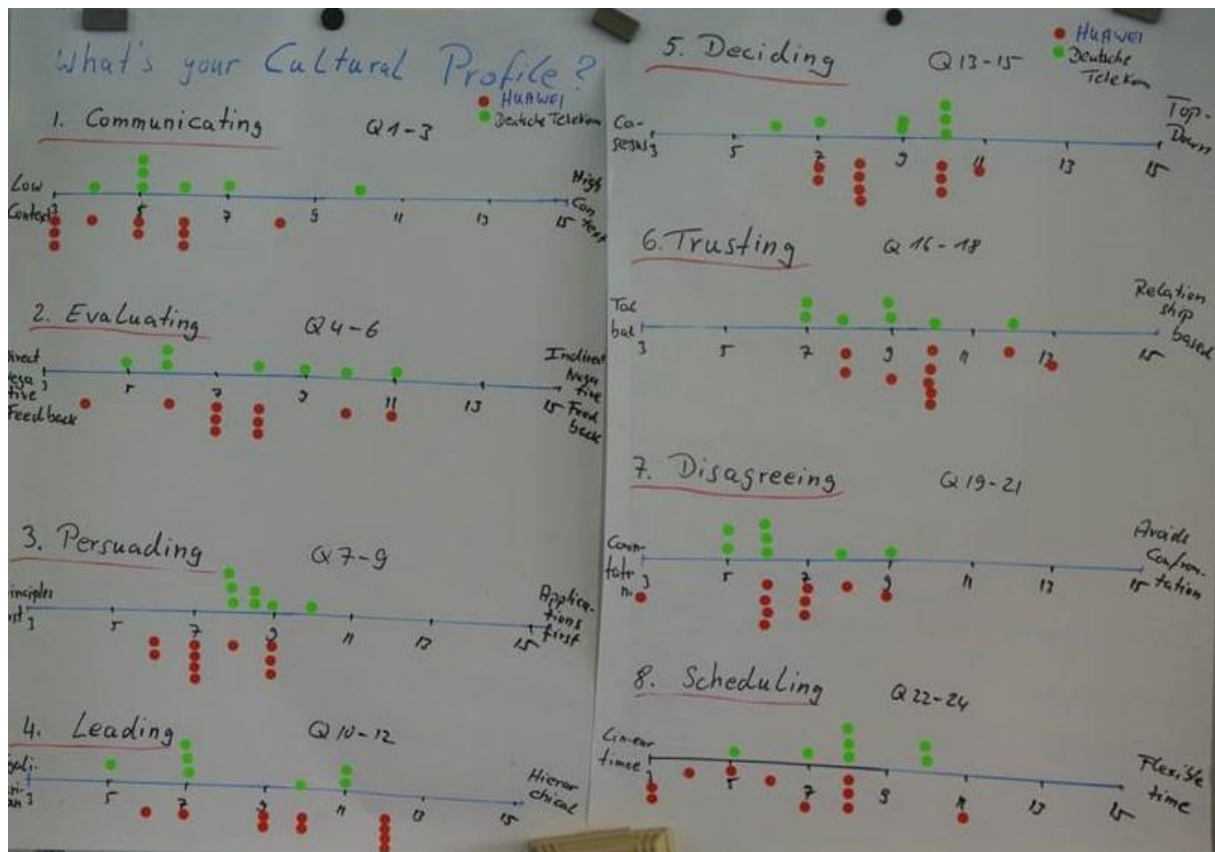 What's your Cultural Profile?
HUAWEI
Deutsche Telekom
1. Communicating Q1-3
Low
Context
3 5 7 9 11 13 15
High
Con
text
2. Evaluating Q4-6
irect
Nega
tive
Feedback
3 5 7 9 11 13 15
Indirect
Nega
tive
Feed
back
3. Persuading Q7-9
inciples
3 5 7 9 11 13 15
Applica-
tions
first
4. Leading Q10-12
3 5 7 9 11 13 15
Hierar
chical
HUAWEI
Deutsche
Telekom
5. Deciding Q13-15
Co-
sesus
3 5 7 9 11 13 15
Top-
Down
6. Trusting Q16-18
3 5 7 9 11 13 15
Relation
ship
based
7. Disagreeing Q19-21
3 5 7 9 11 13 15
Avoids
Confron-
tation
8. Scheduling Q22-24
Linear
3 5 7 9 11 13 15
Flexible
time